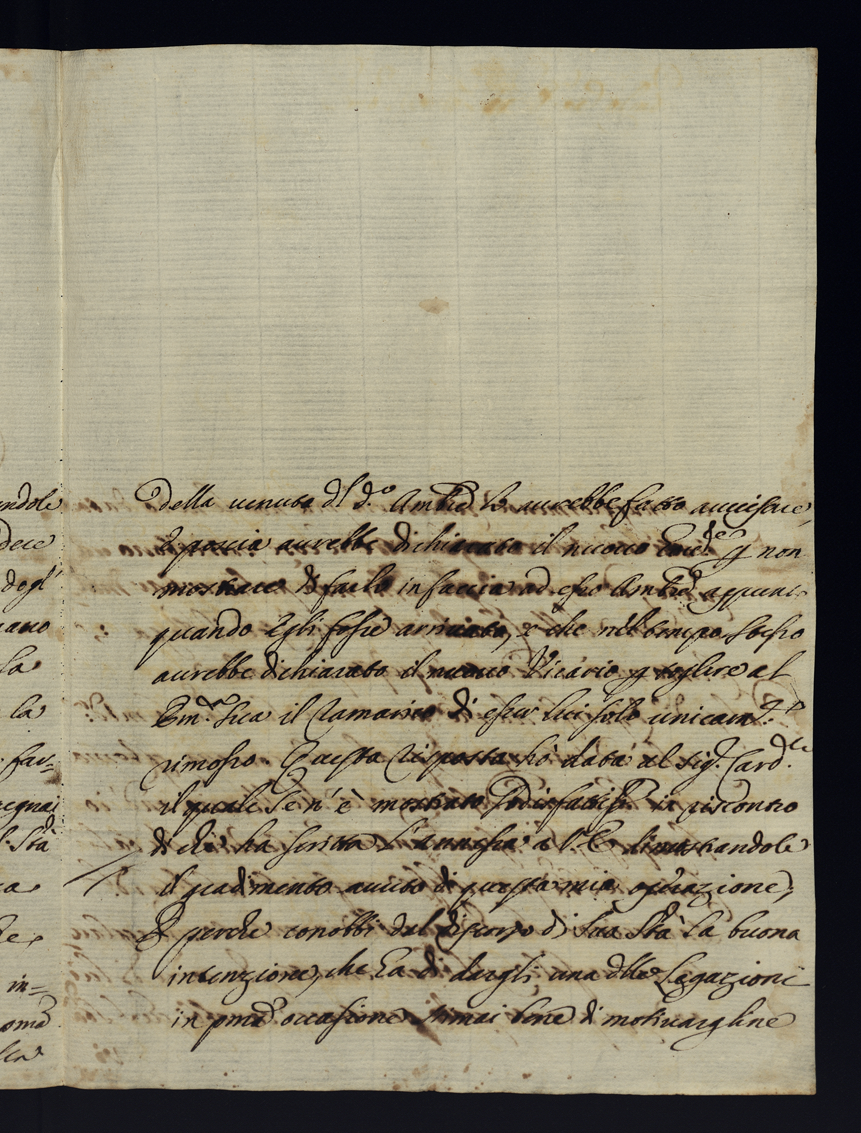 andole
dece
degl'
la
la
far=
S. Stà
in=
Della venuta dl d.º Ambr.e lo aurebbe fatto auuisare,
e poscia aurebbe dichiarato il nuouo p non
mostrare di farlo in faccia ad esso Ambr.e appunto
quando Egli fosse arriuato, e che nel tempo stesso
aurebbe dichiarato il nuouo Vicario p togliere al
Em.º Sua il ramarico di esser lui solo unicam.te
rimosso. Questa risposta hò data al Sig.r Card.le
il quale se n'è mostrato sodisfattiss.º in riscontro
di che ha scritta l'annessa a V.E. dimostrandole
il gradimento auuto di questa mia operazione,
E perche conobbi dal discorso di Sua Stà la buona
intenzione, che ha di dargli una delle Legazioni
in pma occasione stimai bene di motiuargline